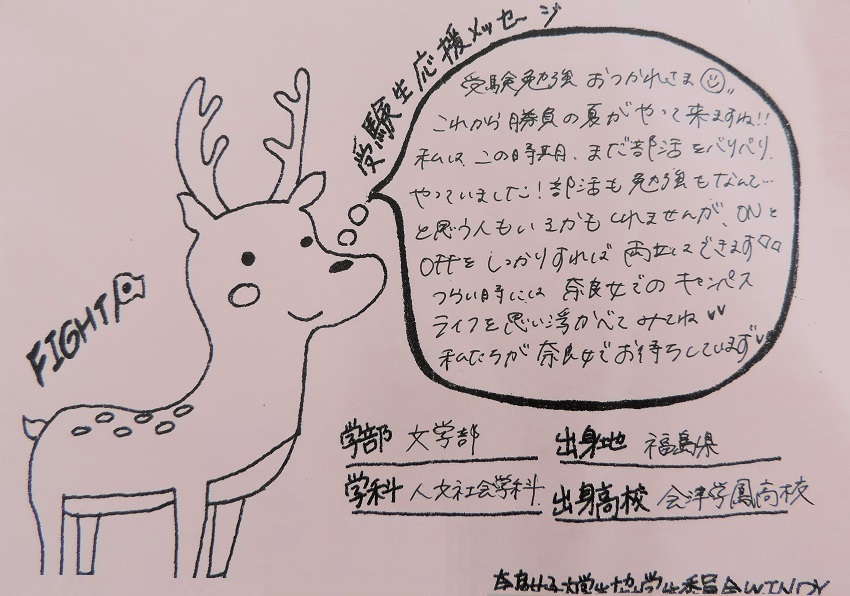 受験生応援メッセージ
受験勉強 おつかれさま
これから勝負の夏がやって来ますね!!
私は、この時期、まだ部活をバリバリ
やっていました!部活も勉強もなんて…
と思う人もいるかもしれませんが、ONと
OFFをしっかりすれば両立はできます
つらい時には奈良女でのキャンパス
ライフを思い浮かべてみてね
私たちが奈良女でお待ちしています
FIGHT
学部 文学部 出身地 福島県
学科 人文社会学科 出身高校 会津学鳳高校
奈良女子大学生協学生委員会WINDY